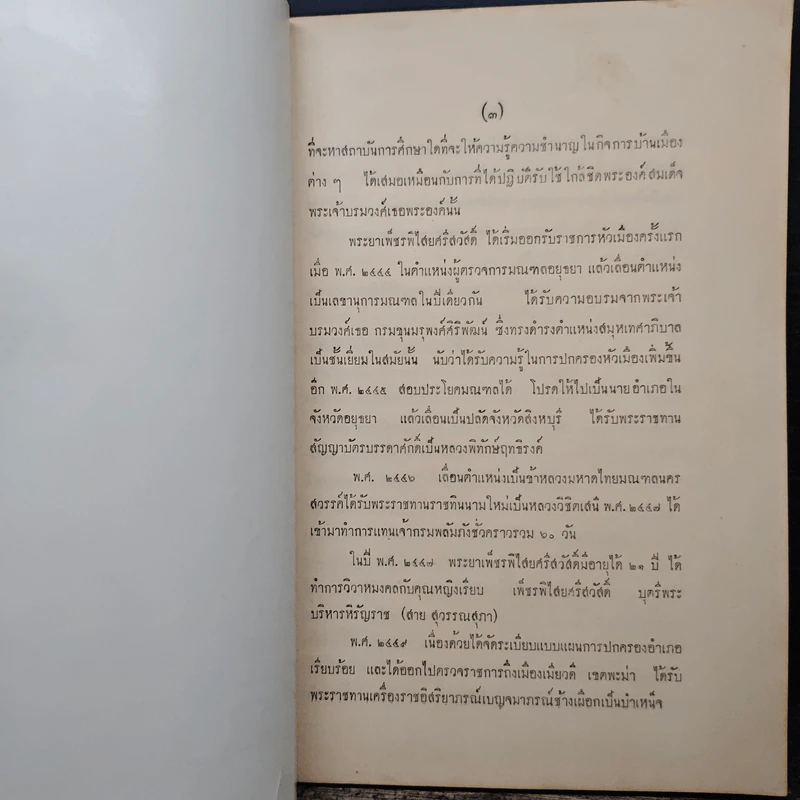 (๓)
ที่จะหาสถาบันการศึกษาใดที่จะให้ความรู้ความชำนาญในกิจการบ้านเมือง
ต่าง ๆ ได้เสมอเหมือนกับการที่ได้ปฏิบัติรับใช้ใกล้ชิดพระองค์สมเด็จ
พระเจ้าบรมวงศ์เธอพระองค์นั้น
พระยาเพ็ชรพิไสยศรีสวัสดิ์ ได้เริ่มออกรับราชการหัวเมืองครั้งแรก
เมื่อ พ.ศ. ๒๔๔๔ ในตำแหน่งผู้ตรวจการมณฑลอยุธยา แล้วเลื่อนตำแหน่ง
เป็นเลขานุการมณฑลในปีเดียวกัน ได้รับความอบรมจากพระเจ้า
บรมวงศ์เธอ กรมขุนมรุพงศ์ศิริพัฒน์ ซึ่งทรงดำรงตำแหน่งสมุหเทศาภิบาล
เป็นชั้นเยี่ยมในสมัยนั้น นับว่าได้รับความรู้ในการปกครองหัวเมืองเพิ่มขึ้น
อีก พ.ศ. ๒๔๔๕ สอบประโยคมณฑลได้ โปรดให้ไปเป็นนายอำเภอใน
จังหวัดอยุธยา แล้วเลื่อนเป็นปลัดจังหวัดสิงหบุรี ได้รับพระราชทาน
สัญญาบัตรบรรดาศักดิ์เป็นหลวงพิทักษ์ฤทธิรงค์
พ.ศ. ๒๔๔๖ เลื่อนตำแหน่งเป็นข้าหลวงมหาดไทยมณฑลนคร
สวรรค์ได้รับพระราชทานราชทินนามใหม่เป็นหลวงวิชิตเสนี พ.ศ. ๒๔๔๗ ได้
เข้ามาทำการแทนเจ้ากรมพลัมภังชั่วคราวรวม ๖๐ วัน
ในปี พ.ศ. ๒๔๔๗ พระยาเพ็ชรพิไสยศรีสวัสดิ์มีอายุได้ ๒๑ ปี ได้
ทำการวิวาหมงคลกับคุณหญิงเรียบ เพ็ชรพิไสยศรีสวัสดิ์ บุตรีพระ
บริหารหิรัญราช (สาย สุวรรณสุภา)
พ.ศ. ๒๔๔๙ เนื่องด้วยได้จัดระเบียบแบบแผนการปกครองอำเภอ
เรียบร้อย และได้ออกไปตรวจราชการถึงเมืองเมียวดี เขตพะม่า ได้รับ
พระราชทานเครื่องราชอิสริยาภรณ์เบญจมาภรณ์ช้างเผือกเป็นบำเหน็จ